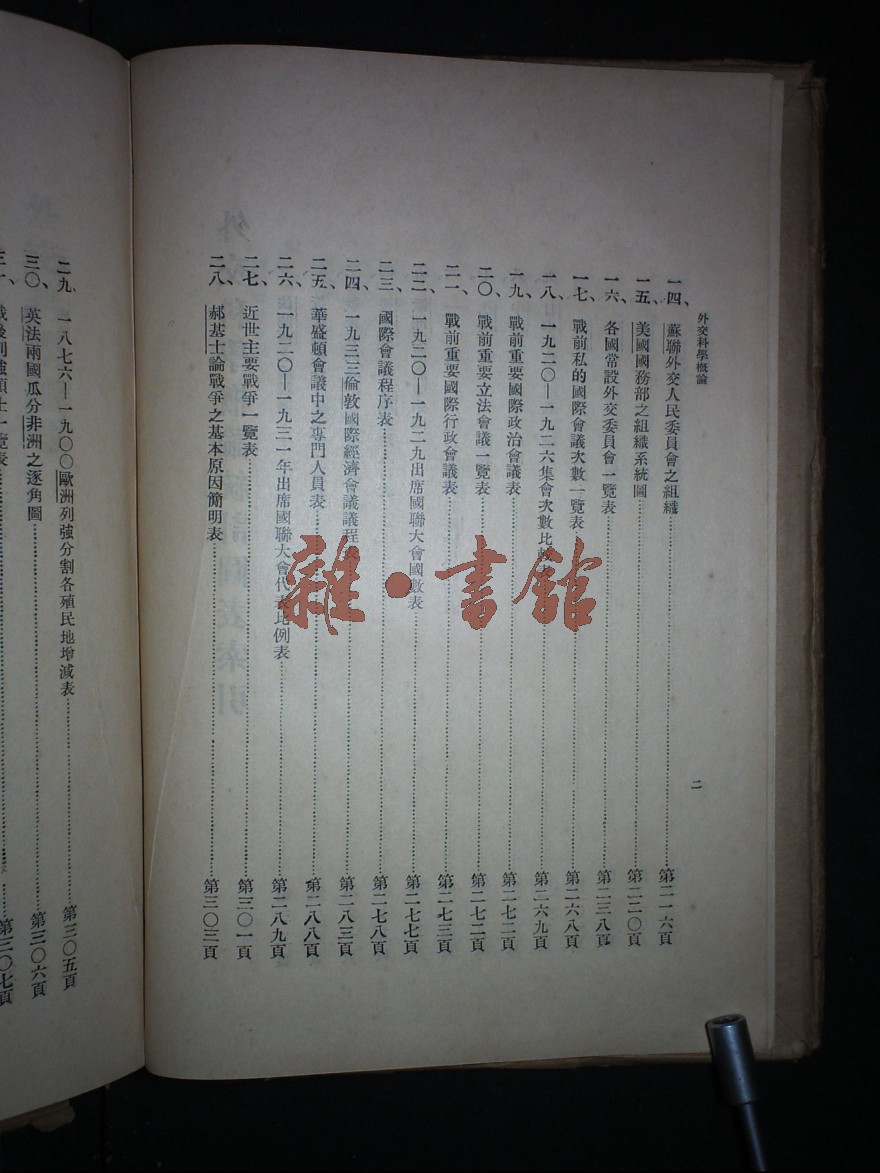 外交科學概論
二
一四、蘇聯外交人民委員會之組織……第二一六頁
一五、美國國務部之組織系統圖……第二二〇頁
一六、各國常設外交委員會一覽表……第二三八頁
一七、戰前私的國際會議次數一覽表……第二六八頁
一八、一九二〇—一九二六集會次數比較表……第二六九頁
一九、戰前重要國際政治會議表……第二七二頁
二〇、戰前重要立法會議一覽表……第二七二頁
二一、戰前重要國際行政會議表……第二七三頁
二二、一九二〇—一九二九出席國聯大會國數表……第二七七頁
二三、國際會議程序表……第二七八頁
二四、一九三三倫敦國際經濟會議議程表……第二八三頁
二五、華盛頓會議中之專門人員表……第二八八頁
二六、一九二〇—一九三一年出席國聯大會代表比例表……第二八九頁
二七、近世主要戰爭一覽表……第三〇一頁
二八、郝基士論戰爭之基本原因簡明表……第三〇三頁
二九、一八七六—一九〇〇歐洲列強分割各殖民地增減表……第三〇五頁
三〇、英法兩國瓜分非洲之逐角圖……第三〇六頁
一覽表……第三〇七頁
雜·書館